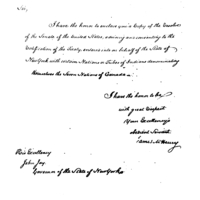 Sir,
I have the honor to enclose you a Copy of the Resolve
of the Senate of the United States, advising and consenting to the
ratification of the Treaty entered into on behalf of the State of
New York with certain Nations or Tribes of Indians denominating
themselves the Seven Nations of Canada
I have the honor to be
with great respect
Your Excellency's
Obedient Servant
James McHenry
His Excellency
John Jay
Governor of the State of New York